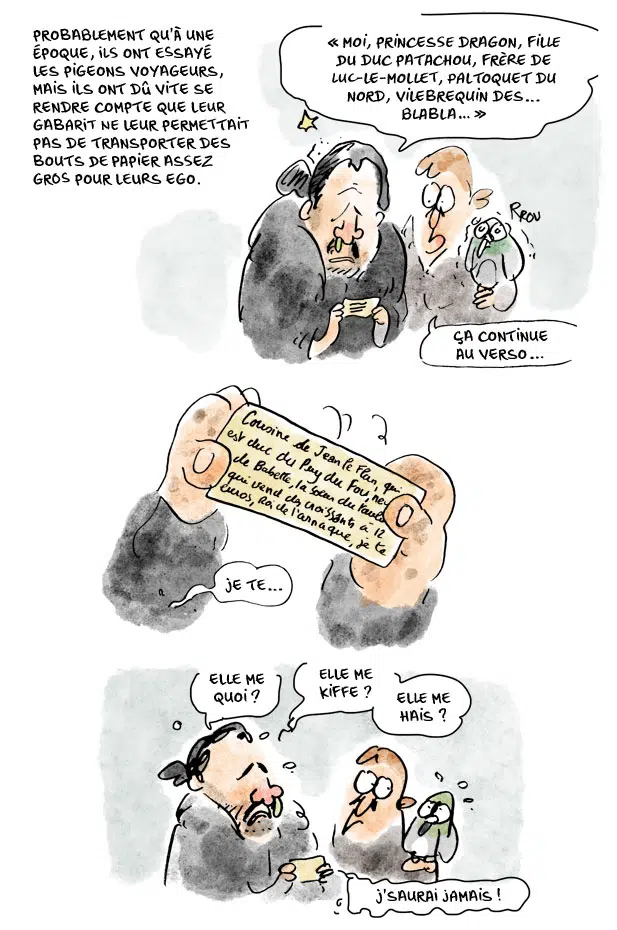 PROBABLEMENT QU'À UNE
ÉPOQUE, ILS ONT ESSAYÉ
LES PIGEONS VOYAGEURS,
MAIS ILS ONT DÛ VITE SE
RENDRE COMPTE QUE LEUR
GABARIT NE LEUR PERMETTAIT
PAS DE TRANSPORTER DES
BOUTS DE PAPIER ASSEZ
GROS POUR LEURS EGO.
« MOI, PRINCESSE DRAGON, FILLE
DU DUC PATACHOU, FRÈRE DE
LUC-LE-MOLLET, PALTOQUET DU
NORD, VILEBREQUIN DES...
BLABLA... »
RROU
ÇA CONTINUE
AU VERSO...
Cousine de Jean le Flan, qui
est duc du Puy du Fou, neu
de Babette, la sœur de Paulo
qui vend des croissants à 12
euros, Roi de l'arnaque, je te
JE TE...
ELLE ME
QUOI ?
ELLE ME
KIFFE ?
ELLE ME
HAIS ?
J'SAURAI JAMAIS !